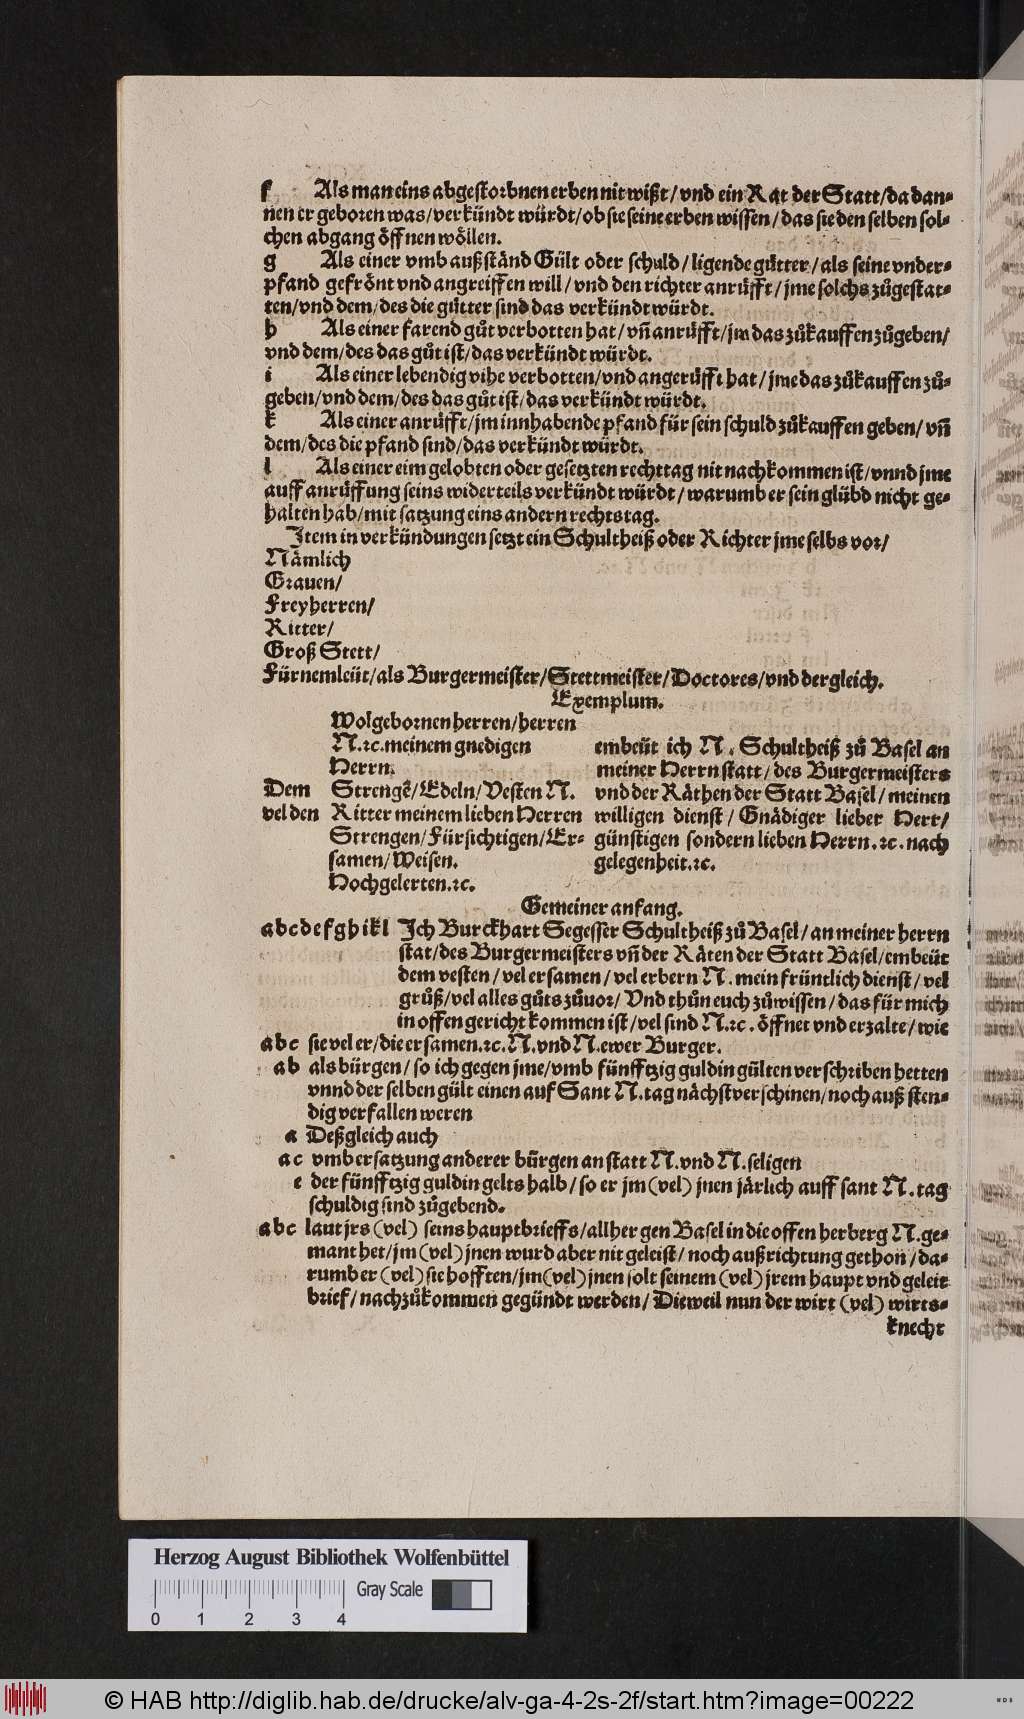 f Als man eins abgestorbnen erben nit wißt / vnd ein Rat der Statt / da dan-
nen er geboren was / verkündt würdt / ob sie seine erben wissen / das sie den selben sol-
chen abgang öffnen wöllen.
g Als einer vmb außständ Gült oder schuld / ligende gůtter / als seine vnder-
pfand gefrönt vnd angreiffen will / vnd den richter anrüfft / jme solchs zůgestat-
ten / vnd dem / des die gůtter sind das verkündt würdt.
h Als einer farend gůt verbotten hat / vñ anrüfft / jm das zůkauffen zůgeben /
vnd dem / des das gůt ist / das verkündt würdt.
i Als einer lebendig vihe verbotten / vnd angerüfft hat / jme das zůkauffen zů-
geben / vnd dem / des das gůt ist / das verkündt würdt.
k Als einer anrüfft / jm innhabende pfand für sein schuld zůkauffen geben / vñ
dem / des die pfand sind / das verkündt würdt.
l Als einer eim gelobten oder gesetzten rechttag nit nachkommen ist / vnnd jme
auff anrüffung seins widerteils verkündt würdt / warumb er sein glübd nicht ge-
halten hab / mit satzung eins andern rechtstag.
Item in verkündungen setzt ein Schultheiß oder Richter jme selbs vor /
Nämlich
Grauen /
Freyherren /
Ritter /
Groß Stett /
Fürnemleüt / als Burgermeister / Stettmeister / Doctores / vnd dergleich.
Exemplum.
Wolgebornen herren / herren
N.ꝛc. meinem gnedigen
Herrn.
Dem Strengẽ / Edeln / Vesten N.
vel den Ritter meinem lieben Herren
Strengen / Fürsichtigen / Er-
samen / Weisen.
Hochgelerten.ꝛc.
embeüt ich N. Schultheiß zů Basel an
meiner Herrn statt / des Burgermeisters
vnd der Räthen der Statt Basel / meinen
willigen dienst / Gnädiger lieber Herr /
günstigen sondern lieben Herrn.ꝛc. nach
gelegenheit.ꝛc.
Gemeiner anfang.
a b c d e f g h i k l Ich Burckhart Segesser Schultheiß zů Basel / an meiner herrn
stat / des Burgermeisters vñ der Räten der Statt Basel / embeüt
dem vesten / vel ersamen / vel erbern N. mein früntlich dienst / vel
grůß / vel alles gůts zůuor / Vnd thůn euch zůwissen / das für mich
in offen gericht kommen ist / vel sind N.ꝛc. öffnet vnd erzalte / wie
a b c sie vel er / die ersamen.ꝛc. N. vnd N. ewer Burger.
a b als bürgen / so ich gegen jme / vmb fünfftzig guldin gülten verschriben hetten
vnnd der selben gült einen auf Sant N. tag nächst verschinen / noch auß sten-
dig verfallen weren
a Deßgleich auch
a c vmb ersatzung anderer bürgen an statt N. vnd N. seligen
c der fünfftzig guldin gelts halb / so er jm (vel) jnen järlich auff sant N. tag
schuldig sind zůgebend.
a b c laut jrs (vel) seins hauptbrieffs / allher gen Basel in die offen herberg N. ge-
mant het / jm (vel) jnen wurd aber nit geleist / noch außrichtung gethon / da-
rumb er (vel) sie hofften / jm (vel) jnen solt seinem (vel) jrem haupt vnd geleit
brief / nachzůkommen gegündt werden / Dieweil nun der wirt (vel) wirts-
knecht
Herzog August Bibliothek Wolfenbüttel
Gray Scale
0 1 2 3 4
© HAB http://diglib.hab.de/drucke/alv-ga-4-2s-2f/start.htm?image=00222